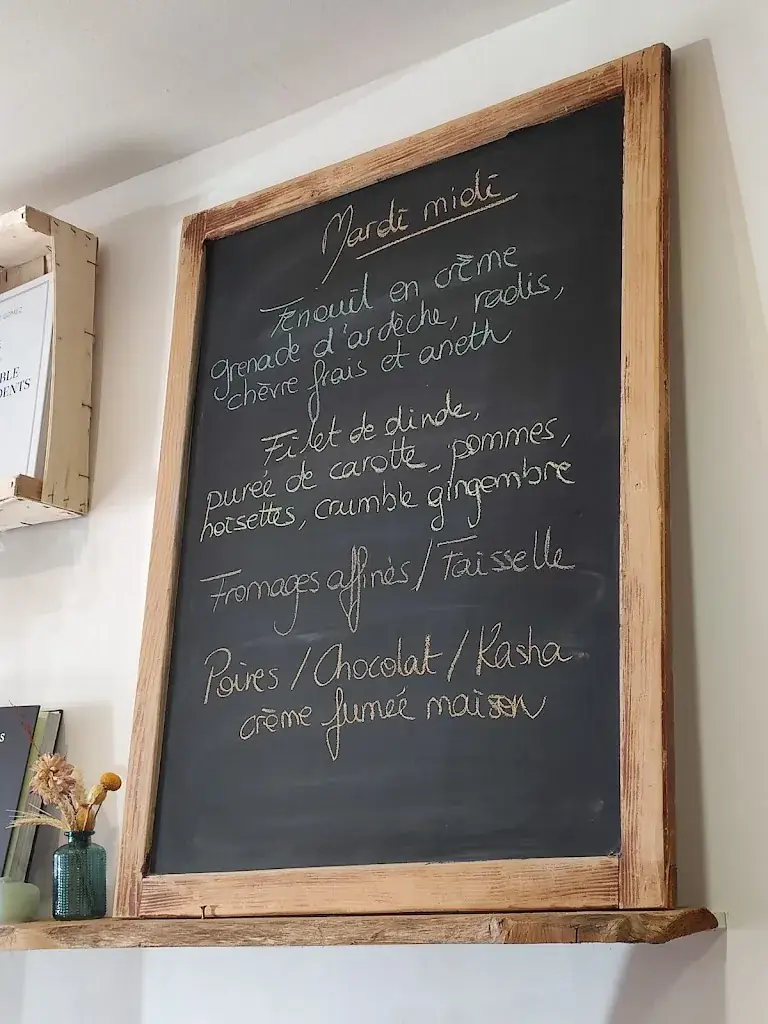 Mardi midi
Fenouil en crème
grenade d'ardèche, radis,
chèvre frais et aneth
Filet de dinde,
purée de carotte, pommes,
noisettes, crumble gingembre
Fromages affinés / Faisselle
Poires / Chocolat / Kasha
crème fumée maison